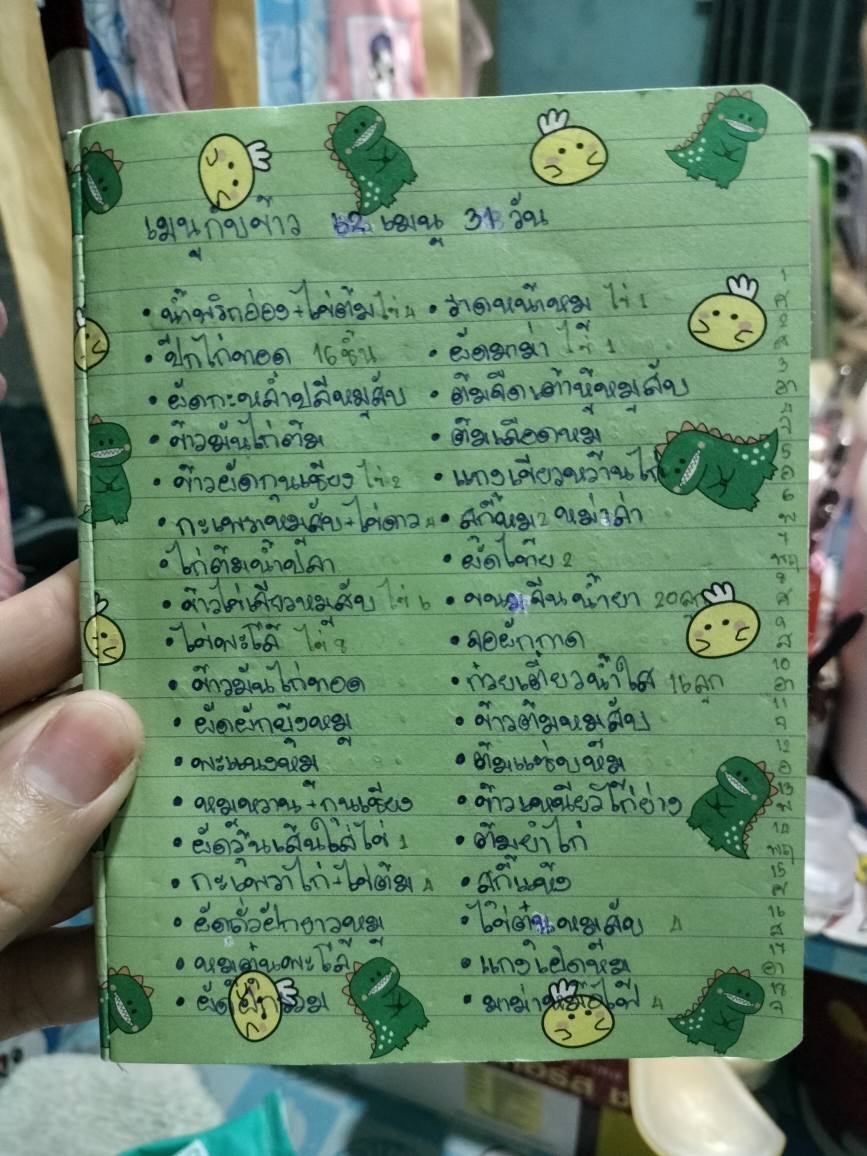 เมนูกับข้าว 62 เมนู 31 วัน
• น้ำพริกอ่อง+ไข่ต้ม ไข่ 4 • ราดหน้าหมู ไข่ 1
• ปีกไก่ทอด 16 ชิ้น • ผัดมาม่า ไข่ 1
• ผัดกะหล่ำปลีหมูสับ • ต้มจืดเต้าหู้หมูสับ
• ข้าวมันไก่ต้ม • ต้มเลือดหมู
• ข้าวผัดกุนเชียง ไข่ 2 • แกงเขียวหวานไก่
• กะเพราหมูสับ+ไข่ดาว 4 • สุกี้หมู 2 หม่าล่า
• ไก่ต้มน้ำปลา • ผัดไทย 2
• ข้าวไข่เจียวหมูสับ ไข่ 6 • ขนมจีนน้ำยา 20 ลูก
• ไข่พะโล้ ไข่ 8 • จอผักกาด
• ข้าวมันไก่ทอด • ก๋วยเตี๋ยวน้ำใส 16 ลูก
• ผัดผักบุ้งหมู • ข้าวต้มหมูสับ
• พะแนงหมู • ต้มแซ่บหมู
• หมูหวาน+กุนเชียง • ข้าวเหนียวไก่ย่าง
• ผัดวุ้นเส้นใส่ไข่ 1 • ต้มยำไก่
• กะเพราไก่+ไข่ต้ม 4 • สุกี้แห้ง
• ผัดถั่วฝักยาวหมู • ไข่ตุ๋นหมูสับ 4
• หมูตุ๋นพะโล้ • แกงเห็ดหมู
• ผัดผักรวม • มาม่าหม้อไฟ 4
1
ศ
2
ส
3
อา
4
จ
5
อ
6
พ
7
พฤ
8
ศ
9
ส
10
อา
11
จ
12
อ
13
พ
14
พฤ
15
ศ
16
ส
17
อา
18
จ